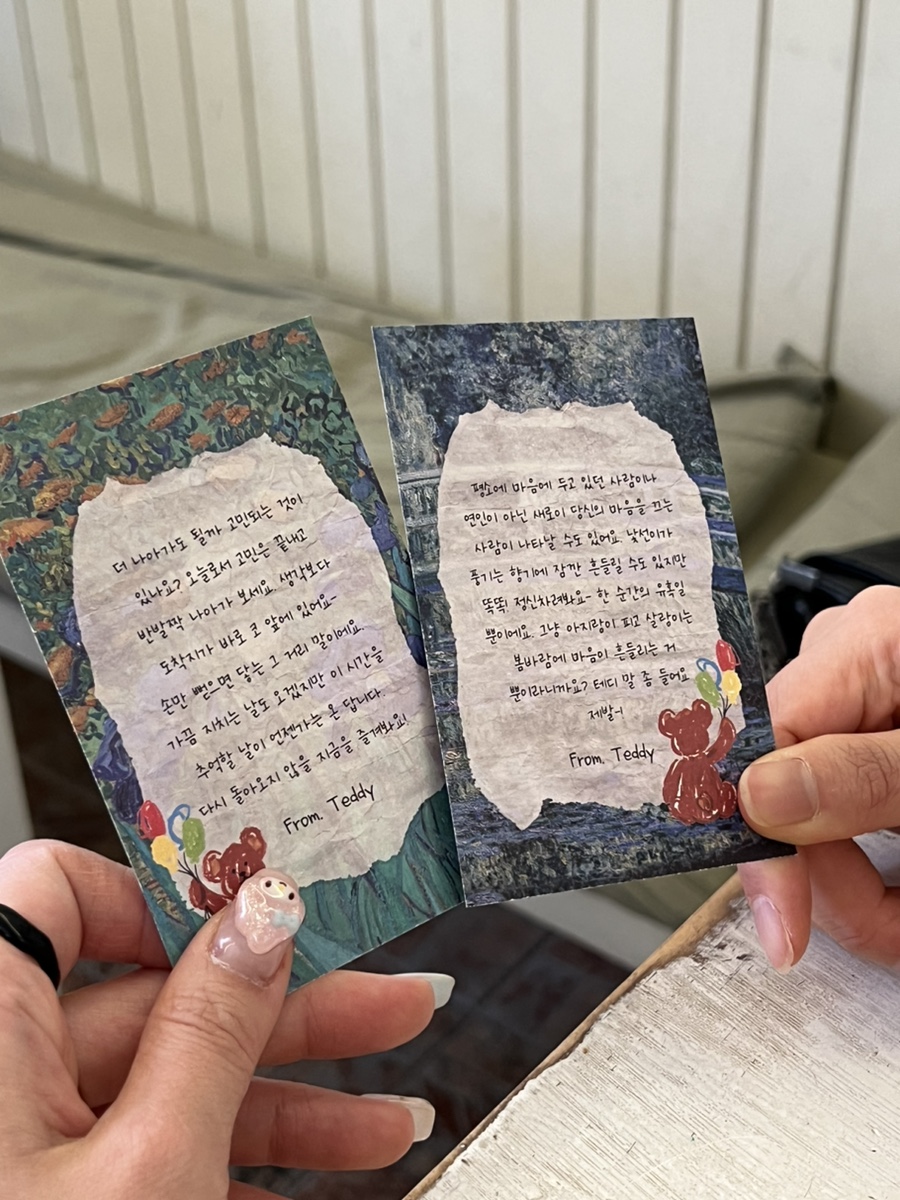 더 나아가도 될까 고민되는 것이
있나요? 오늘로서 고민은 끝내고
반발짝 나아가 보세요. 생각보다
도착지가 바로 코 앞에 있어요~
손만 뻗으면 닿는 그 거리 말이에요.
가끔 지치는 날도 오겠지만 이 시간을
추억할 날이 언젠가는 온 답니다.
다시 돌아오지 않을 지금을 즐겨봐요!
From. Teddy
평소에 마음에 두고 있던 사람이나
연인이 아닌 새로이 당신의 마음을 끄는
사람이 나타날 수도 있어요. 낯선이가
풍기는 향기에 잠깐 흔들릴 수도 있지만
똑똑! 정신차려봐요~ 한 순간의 유혹일
뿐이에요. 그냥 아지랑이 피고 살랑이는
봄바람에 마음이 흔들리는 거
뿐이라니까요? 테디 말 좀 들어요
제발~!
From. Teddy